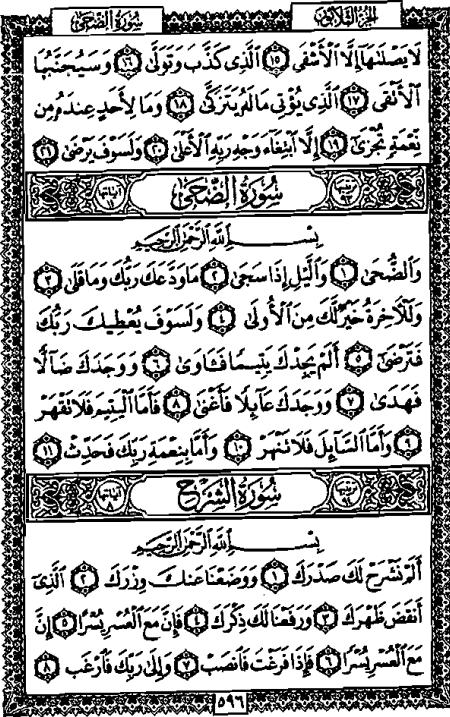 الجزء الثلاثون
سورة الضحى
لَا يَصْلَىٰهَآ إِلَّا ٱلْأَشْقَى ١٥ ٱلَّذِى كَذَّبَ وَتَوَلَّىٰ ١٦ وَسَيُجَنَّبُهَا
ٱلْأَتْقَى ١٧ ٱلَّذِى يُؤْتِى مَالَهُۥ يَتَزَكَّىٰ ١٨ وَمَا لِأَحَدٍ عِندَهُۥ مِن
نِّعْمَةٍ تُجْزَىٰٓ ١٩ إِلَّا ٱبْتِغَآءَ وَجْهِ رَبِّهِ ٱلْأَعْلَىٰ ٢٠ وَلَسَوْفَ يَرْضَىٰ ٢١
ترتيبها ٩٣ سُورَةُ الضُّحَىٰ آياتها ١١
بِسْمِ ٱللَّهِ ٱلرَّحْمَٰنِ ٱلرَّحِيمِ
وَٱلضُّحَىٰ ١ وَٱلَّيْلِ إِذَا سَجَىٰ ٢ مَا وَدَّعَكَ رَبُّكَ وَمَا قَلَىٰ ٣
وَلَلْآخِرَةُ خَيْرٌ لَّكَ مِنَ ٱلْأُولَىٰ ٤ وَلَسَوْفَ يُعْطِيكَ رَبُّكَ
فَتَرْضَىٰٓ ٥ أَلَمْ يَجِدْكَ يَتِيمًا فَـَٔاوَىٰ ٦ وَوَجَدَكَ ضَآلًّا
فَهَدَىٰ ٧ وَوَجَدَكَ عَآئِلًا فَأَغْنَىٰ ٨ فَأَمَّا ٱلْيَتِيمَ فَلَا تَقْهَرْ
٩ وَأَمَّا ٱلسَّآئِلَ فَلَا تَنْهَرْ ١٠ وَأَمَّا بِنِعْمَةِ رَبِّكَ فَحَدِّثْ ١١
ترتيبها ٩٤ سُورَةُ الشَّرْحِ آياتها ٨
بِسْمِ ٱللَّهِ ٱلرَّحْمَٰنِ ٱلرَّحِيمِ
أَلَمْ نَشْرَحْ لَكَ صَدْرَكَ ١ وَوَضَعْنَا عَنكَ وِزْرَكَ ٢ ٱلَّذِىٓ
أَنقَضَ ظَهْرَكَ ٣ وَرَفَعْنَا لَكَ ذِكْرَكَ ٤ فَإِنَّ مَعَ ٱلْعُسْرِ يُسْرًا ٥ إِنَّ
مَعَ ٱلْعُسْرِ يُسْرًا ٦ فَإِذَا فَرَغْتَ فَٱنصَبْ ٧ وَإِلَىٰ رَبِّكَ فَٱرْغَب ٨
٥٩٦